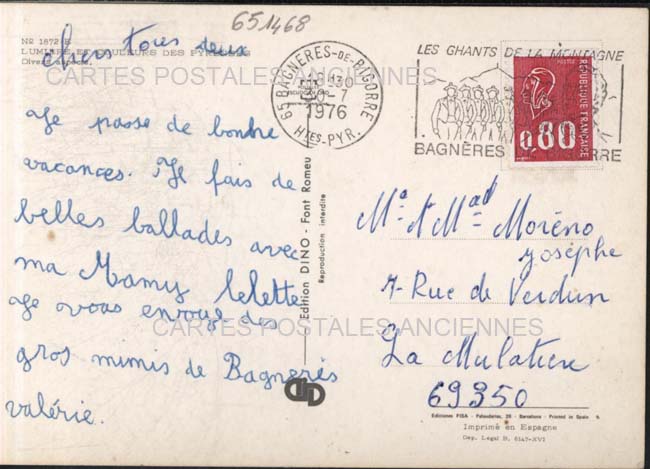 651468
Nº 1872 E
LUMIERE ET COULEURS DES PYRENEES
Divers aspects.
chers tous deux
CARTES POSTALES ANCIENNES
65 BAGNERES-DE-BIGORRE
1976
HTES-PYR.
LES CHANTS DE LA MONTAGNE
BAGNÈRES DE BIGORRE
POSTES
REPUBLIQUE FRANÇAISE
0,80
Je passe de bonne
vacances. Je fais de
belles ballades avec
ma Mamy lelette
Je vous envoye des
gros mimis de Bagnerès
valérie.
Edition DINO - Font Romeu
Reproduction interdite
Mad Moréno
Josèphe
7 Rue de Verdun
La Mulatière
69350
CARTES POSTALES ANCIENNES
Ediciones FISA - Palaudarias, 26 - Barcelona - Printed in Spain
Imprimé en Espagne
Dep. Legal B. 6147-XVI